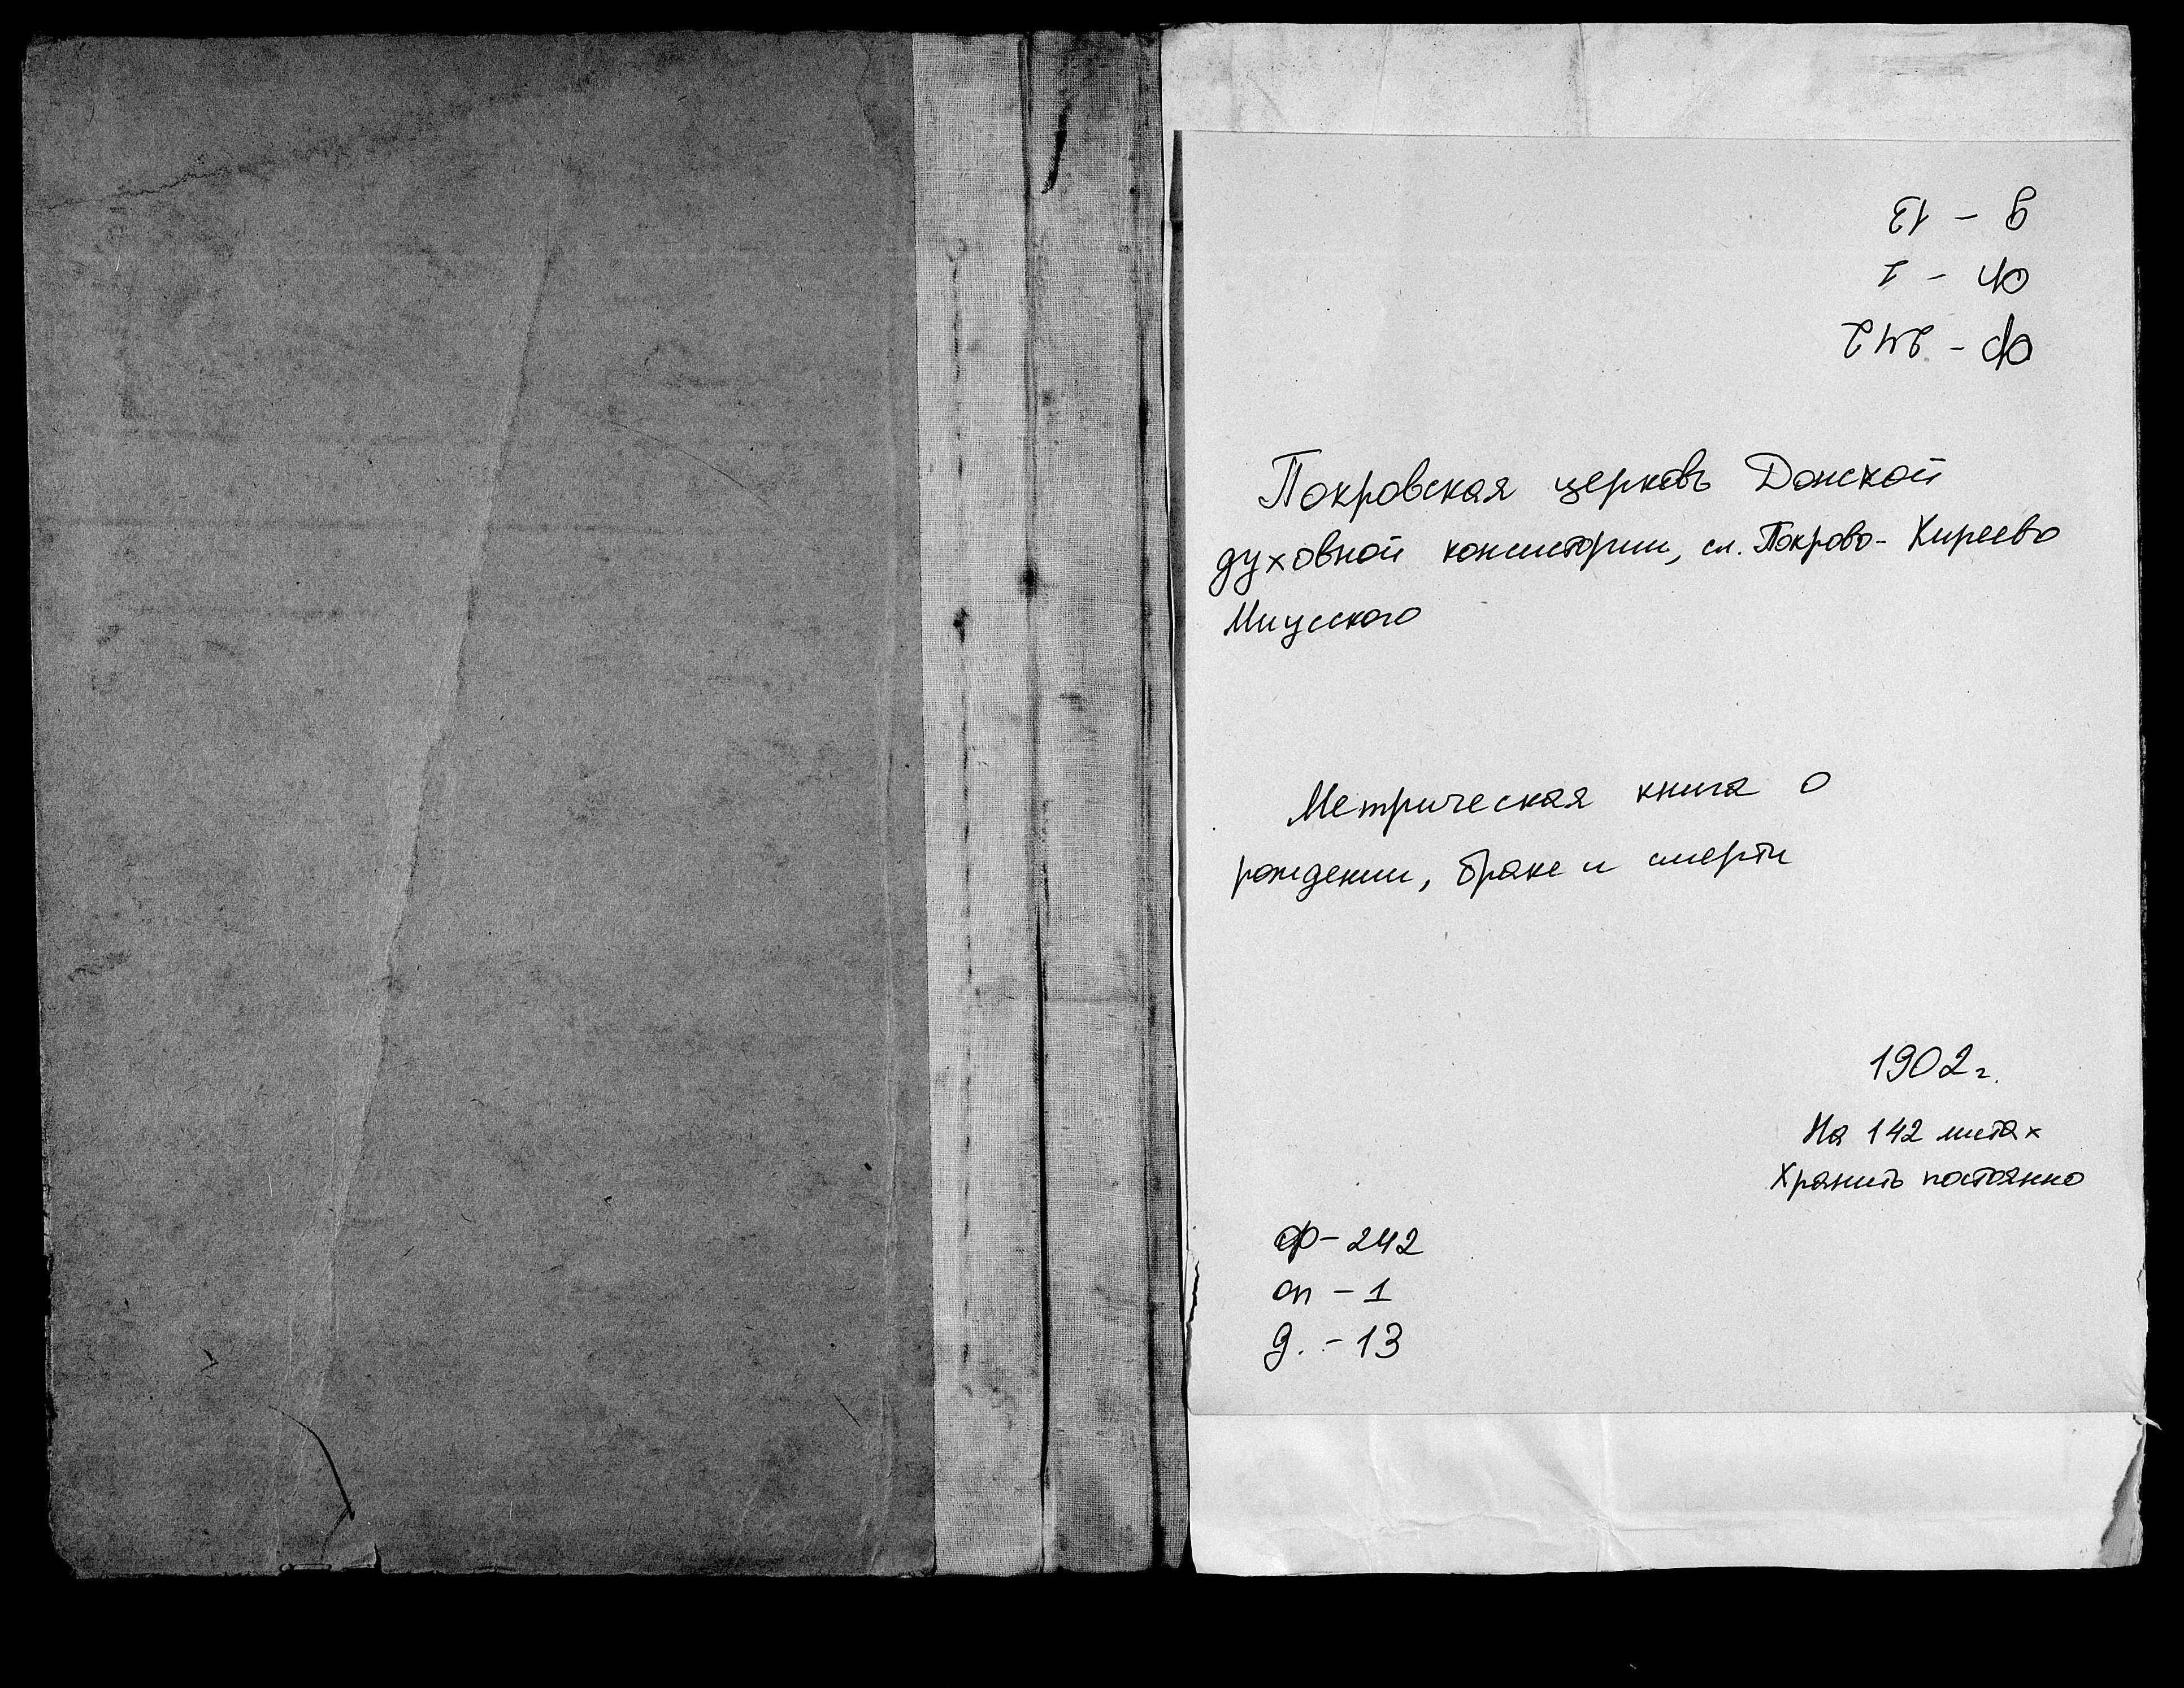 Ф - 242
Оп - 1
д - 13
Покровская церковь Донской
духовной консистории, сл. Покрово-Киреево
Миусского
Метрическая книга о
рождении, браке и смерти
1902 г.
На 142 листах
Хранить постоянно
Ф - 242
оп - 1
д. - 13